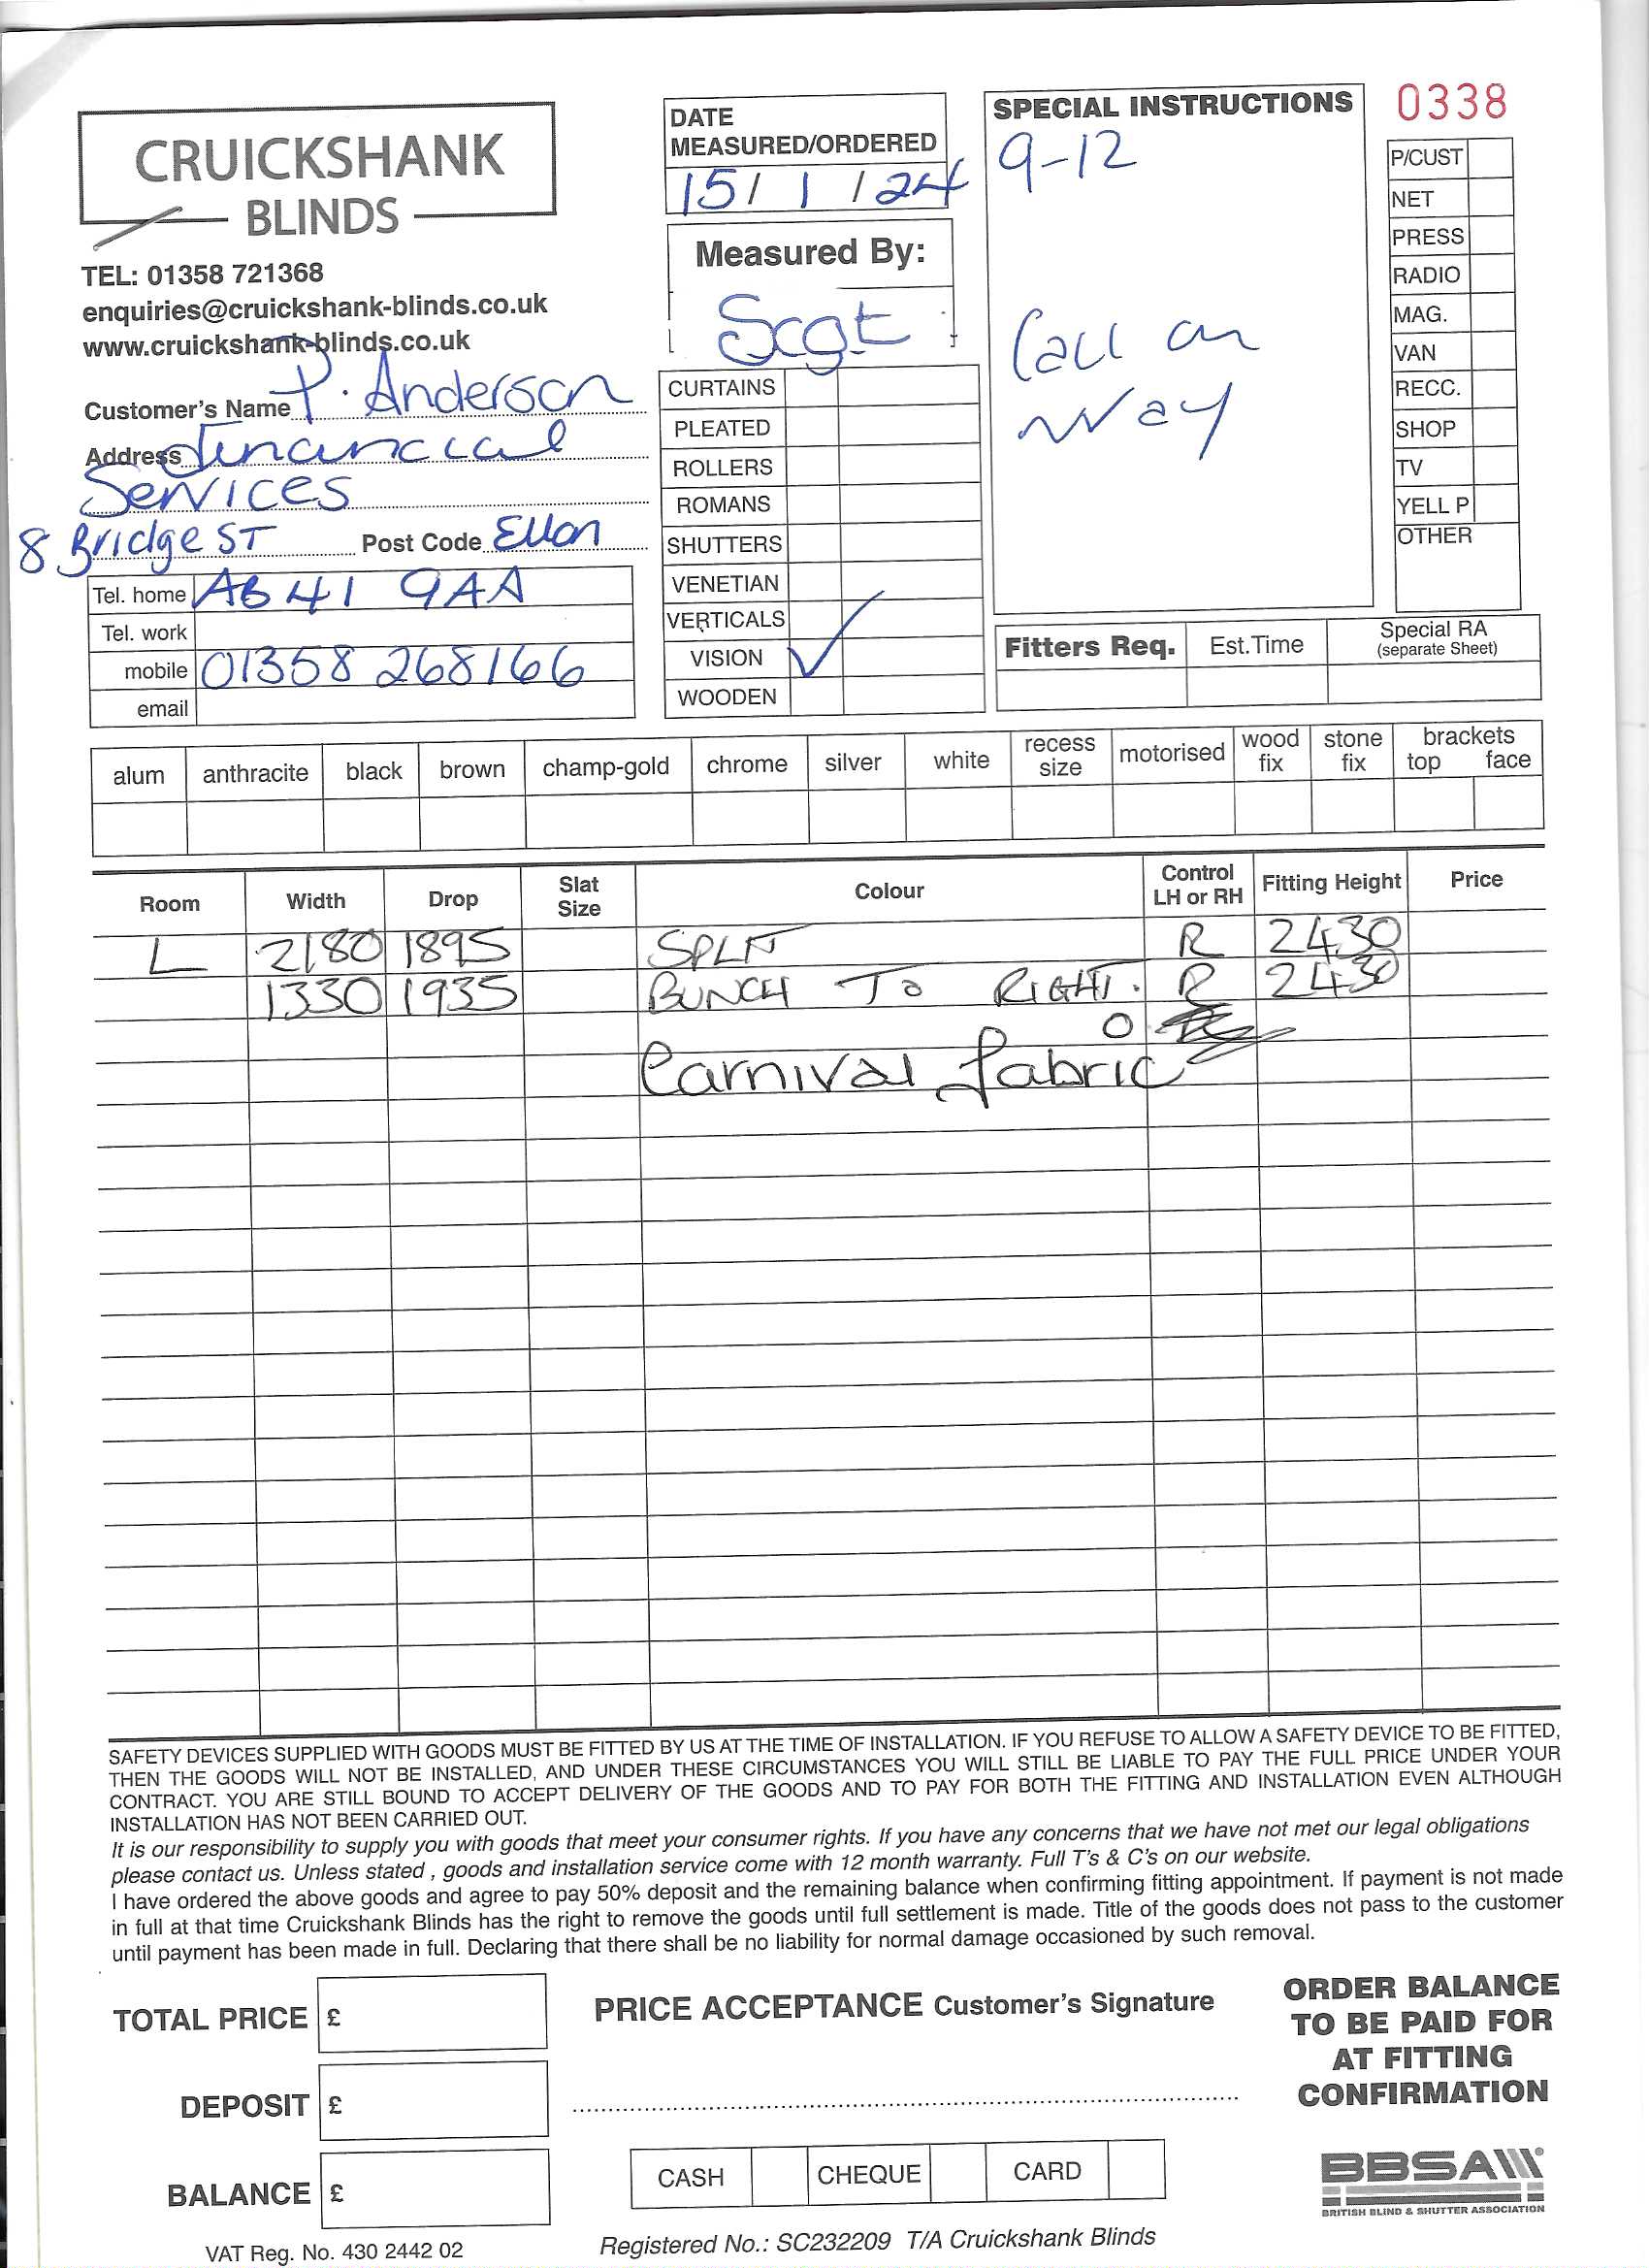 CRUICKSHANK
BLINDS
TEL: 01358 721368
enquiries@cruickshank-blinds.co.uk
www.cruickshank-blinds.co.uk
Customer's Name P. Anderson
Address Financial
Services
8 Bridge ST Post Code Ellon
Tel. home AB41 9AA
Tel. work
mobile 01358 268166
email
DATE
MEASURED/ORDERED
15/ 1 / 24
Measured By:
Scgt
CURTAINS
PLEATED
ROLLERS
ROMANS
SHUTTERS
VENETIAN
VERTICALS
VISION ✓
WOODEN
SPECIAL INSTRUCTIONS
9-12
Call on
way
0338
P/CUST
NET
PRESS
RADIO
MAG.
VAN
RECC.
SHOP
TV
YELL P
OTHER
Fitters Req. Est.Time Special RA
(separate Sheet)
alum anthracite black brown champ-gold chrome silver white recess size motorised wood fix stone fix brackets top face
Room Width Drop Slat Size Colour Control LH or RH Fitting Height Price
L 2180 1895 SPLIT R 2430
1330 1935 BUNCH TO RIGHT. R 2430
O
Carnival fabric
SAFETY DEVICES SUPPLIED WITH GOODS MUST BE FITTED BY US AT THE TIME OF INSTALLATION. IF YOU REFUSE TO ALLOW A SAFETY DEVICE TO BE FITTED,
THEN THE GOODS WILL NOT BE INSTALLED, AND UNDER THESE CIRCUMSTANCES YOU WILL STILL BE LIABLE TO PAY THE FULL PRICE UNDER YOUR
CONTRACT. YOU ARE STILL BOUND TO ACCEPT DELIVERY OF THE GOODS AND TO PAY FOR BOTH THE FITTING AND INSTALLATION EVEN ALTHOUGH
INSTALLATION HAS NOT BEEN CARRIED OUT.
It is our responsibility to supply you with goods that meet your consumer rights. If you have any concerns that we have not met our legal obligations
please contact us. Unless stated , goods and installation service come with 12 month warranty. Full T's & C's on our website.
I have ordered the above goods and agree to pay 50% deposit and the remaining balance when confirming fitting appointment. If payment is not made
in full at that time Cruickshank Blinds has the right to remove the goods until full settlement is made. Title of the goods does not pass to the customer
until payment has been made in full. Declaring that there shall be no liability for normal damage occasioned by such removal.
TOTAL PRICE £
DEPOSIT £
BALANCE £
PRICE ACCEPTANCE Customer's Signature
CASH CHEQUE CARD
ORDER BALANCE
TO BE PAID FOR
AT FITTING
CONFIRMATION
BBSA
BRITISH BLIND & SHUTTER ASSOCIATION
VAT Reg. No. 430 2442 02
Registered No.: SC232209 T/A Cruickshank Blinds